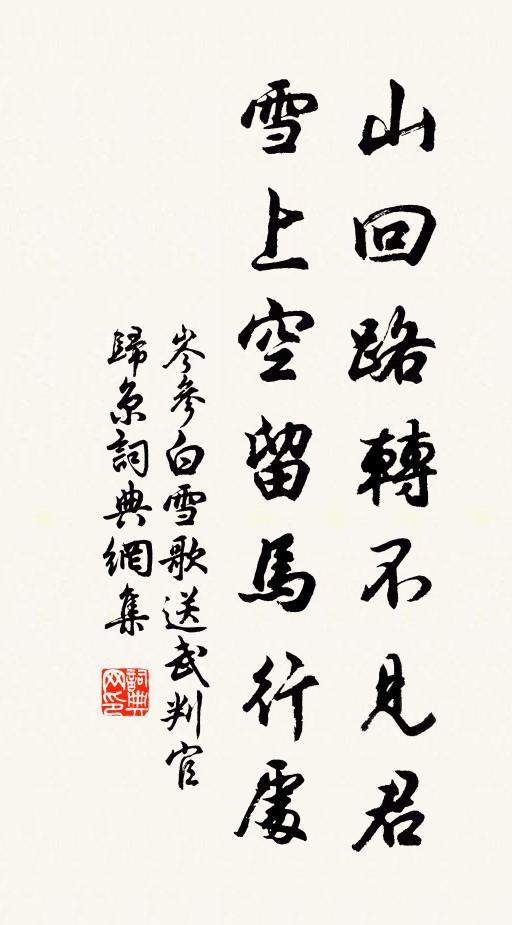 山回路轉不見君
雪上空留馬行處
岑參白雪歌送武判官
歸京詞典網集
詞典
网印